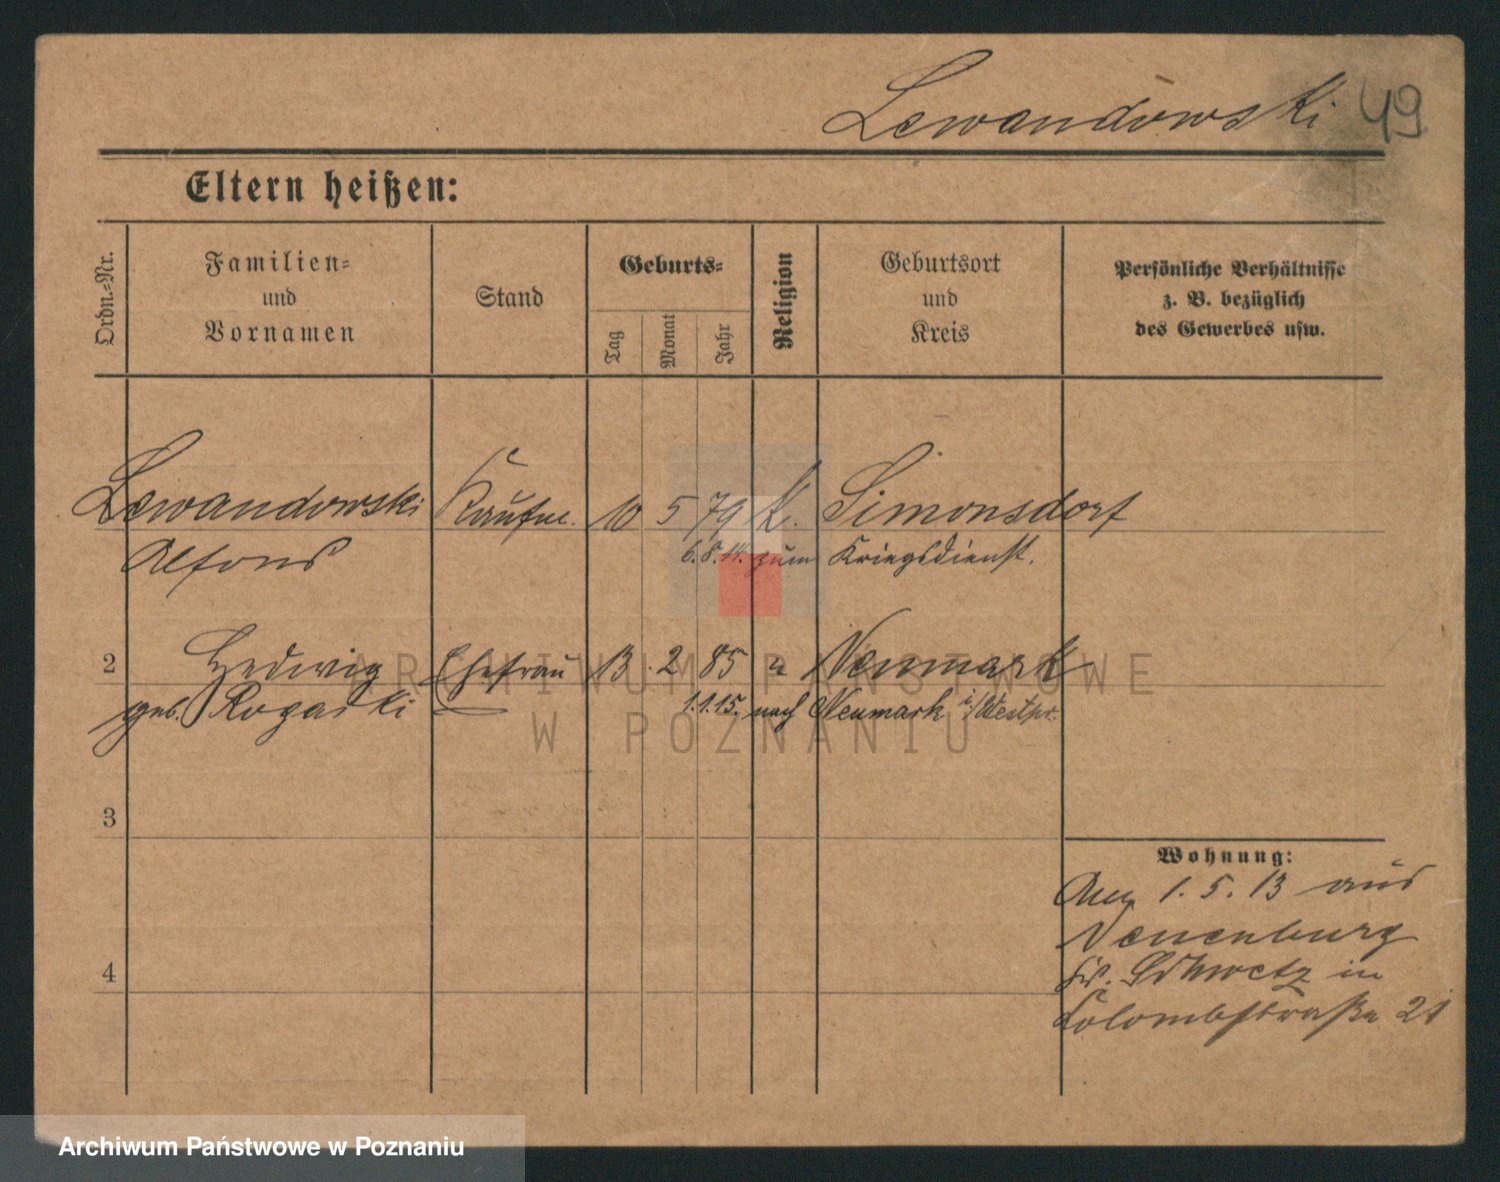 Lewandowski 49
Eltern heißen:
Ordn.-Nr.
Familien-
und
Vornamen
Stand
Geburts-
Tag
Monat
Jahr
Religion
Geburtsort
und
Kreis
Persönliche Verhältnisse
z. B. bezüglich
des Gewerbes usw.
Lewandowski Kaufm. 10 5 79 k. Simonsdorf
Alfons 6.8.14. zum Kriegsdienst.
2 Hedwig Ehefrau 13. 2 85 " Neumark
geb. Rogacki 1.1.15. nach Neumark i/Westpr.
3
4
Wohnung:
1.5.13 aus
Neuenburg
Schwetz in
Colombstraße 21
ARCHIWUM PAŃSTWOWE
W POZNANIU
Archiwum Państwowe w Poznaniu